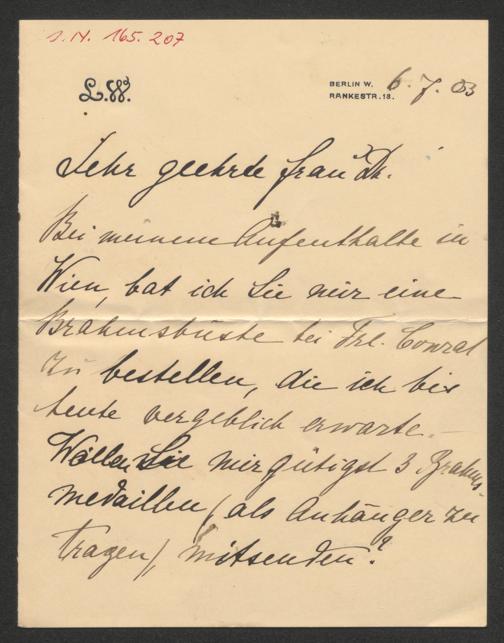 J. N. 165.207
L.W.
BERLIN W.
RANKESTR. 18.
6. 7. 03
Sehr geehrte Frau Dr.
Bei meinem Aufenthalte in
Wien, bat ich Sie mir eine
Brahmsbüste bei Frl. Conrat
zu bestellen, die ich bis
heute vergeblich erwarte. –
Wollen Sie mir gütigst 3 Brahms-
medaillen (als Anhänger zu
tragen), mitsenden?